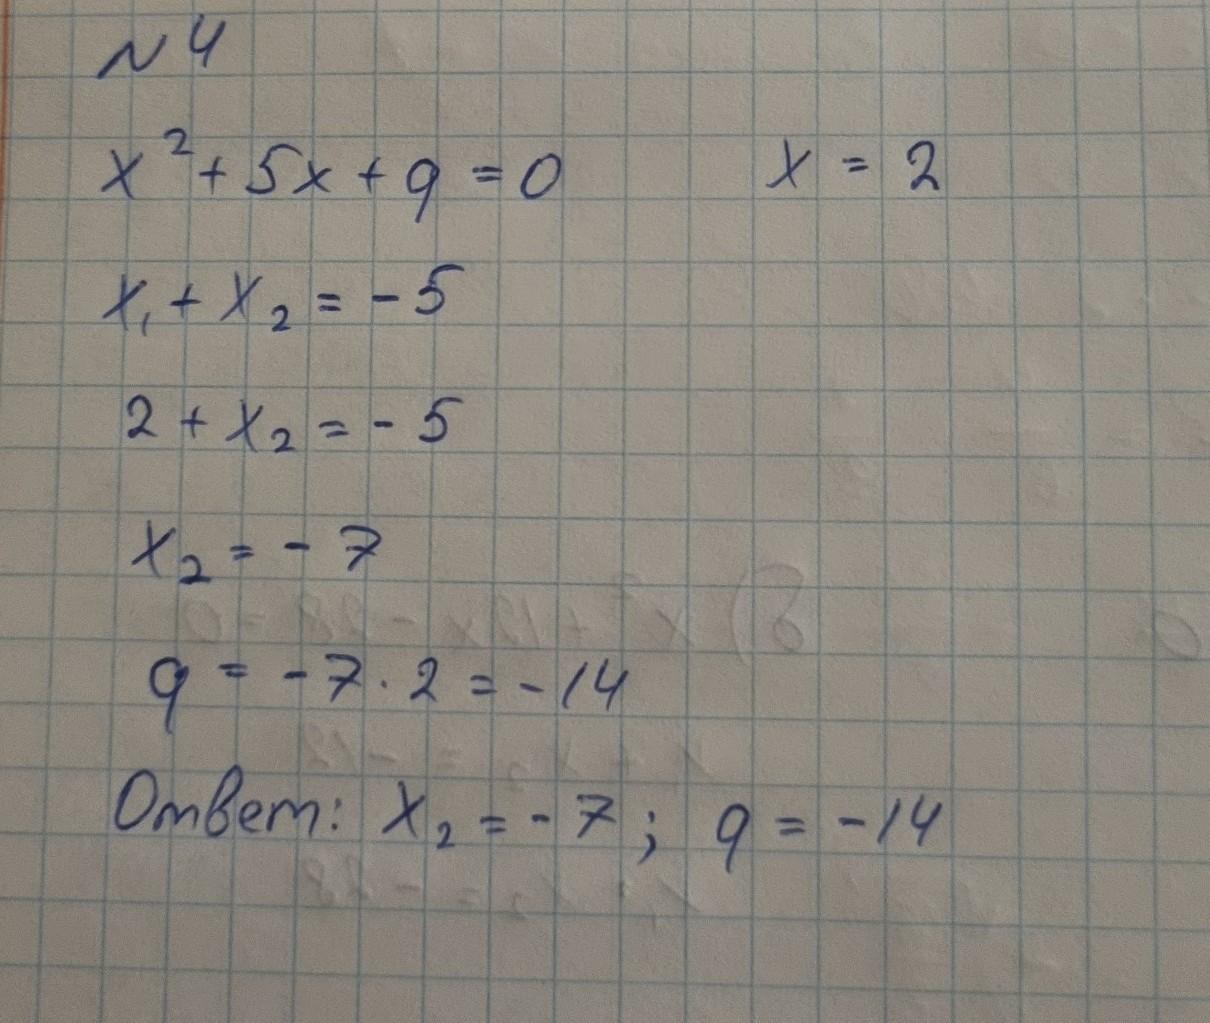 № 4
x² + 5x + q = 0 x = 2
x₁ + x₂ = - 5
2 + x₂ = - 5
x₂ = - 7
q = - 7 · 2 = - 14
Ответ: x₂ = - 7 ; q = - 14